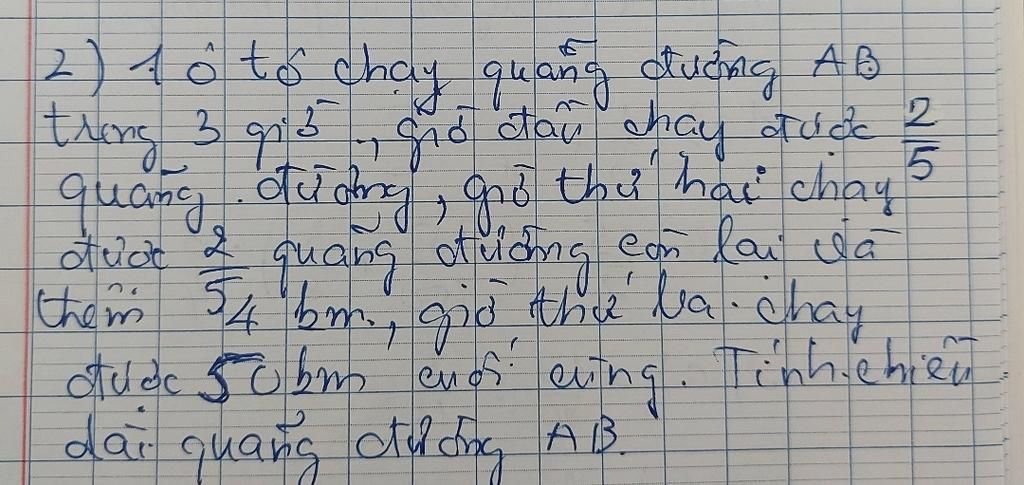 2) 1 ô tô chạy quãng đường AB
trong 3 giờ, giờ đầu chạy được 2/5
quãng đường, giờ thứ hai chạy
được 2/5 quãng đường còn lại và
thêm 4 km, giờ thứ ba chạy
được 50 km cuối cùng. Tính chiều
dài quãng đường AB.